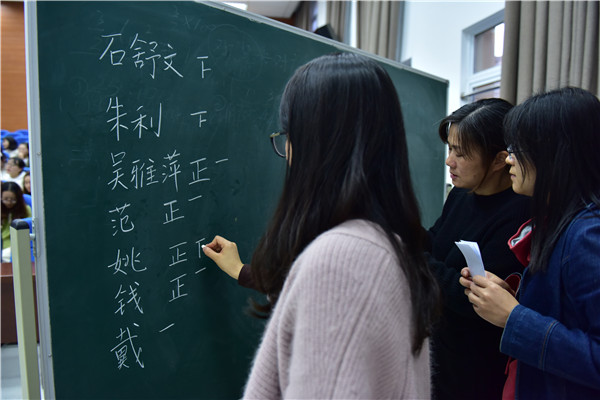 石舒文 下
朱利 下
吴雅萍 正一
范 正一
姚 正
钱 正一
戴 一